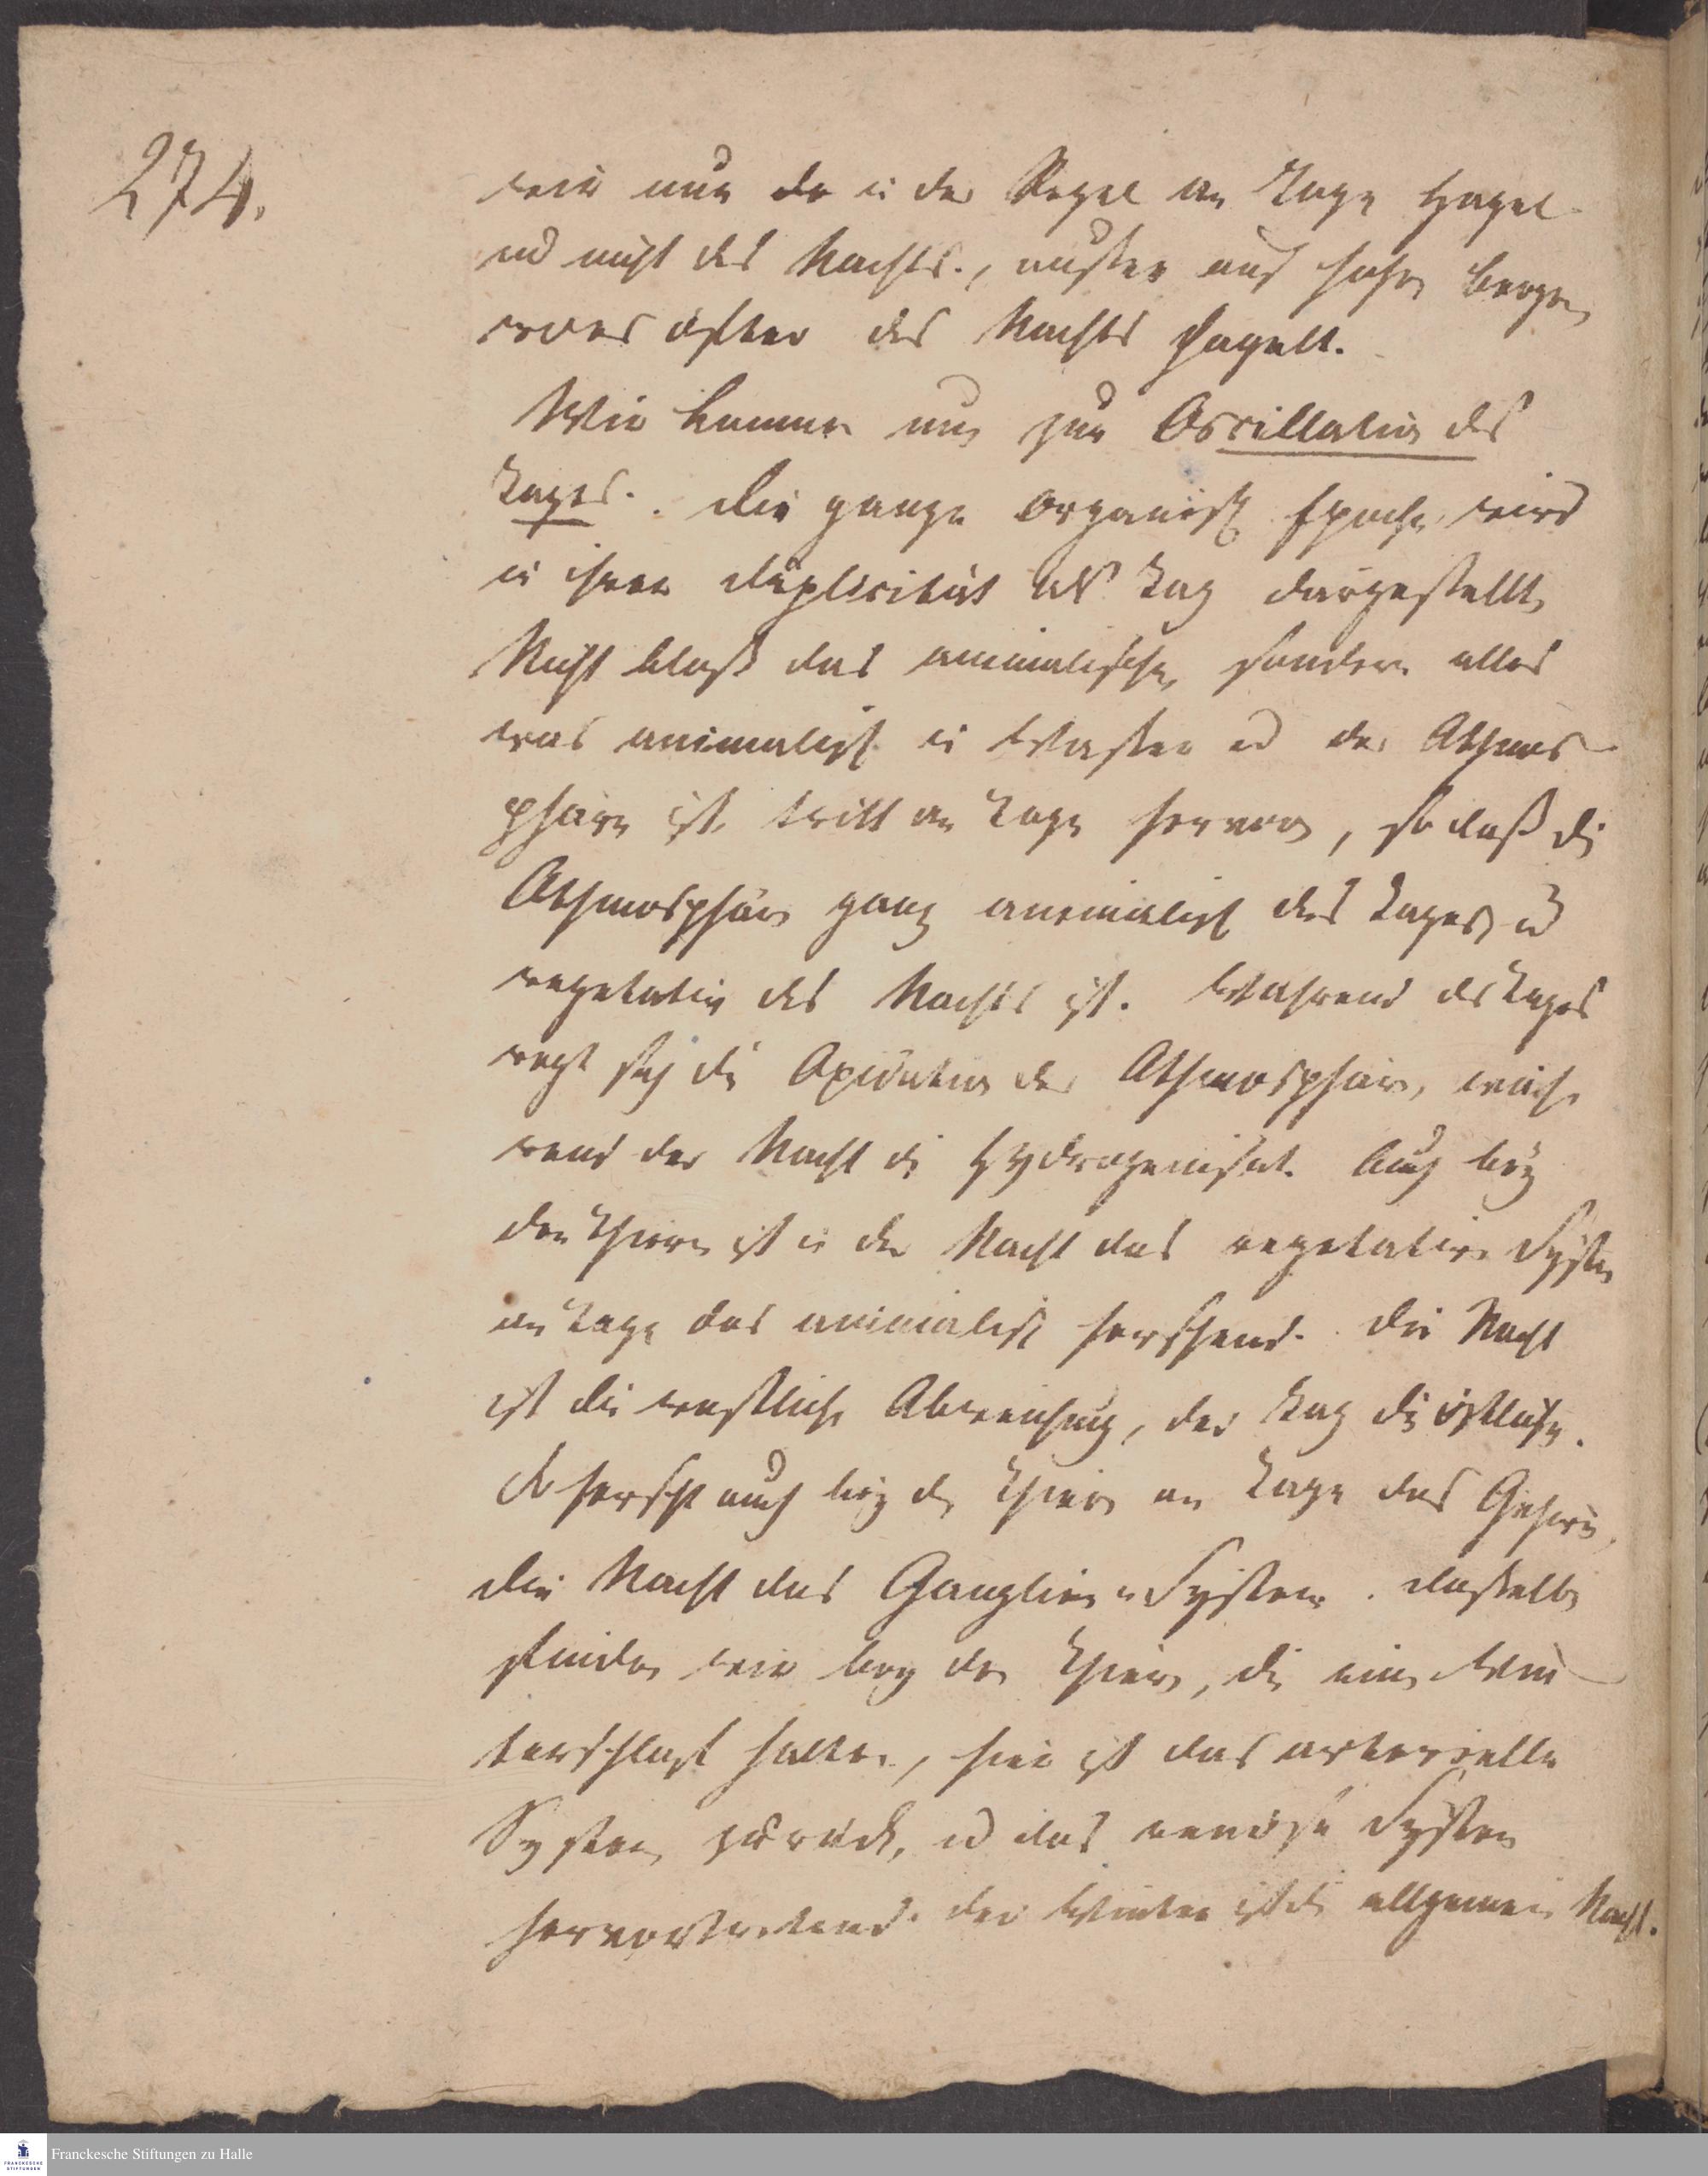 274.
wir nun da in der Regel am Tage Hagel
und nicht des Nachts, außer auf hohen Bergen
wo es öfter des Nachts hagelt.
Wir kommen nun zur Oscillation des
Tages. Die ganze organisch Epoche wird
in ihrer Duplicität als Tag dargestellt,
Nicht bloß das animalische, sondern alles
was animalisch in Wasser und der Athmos
phäre ist, tritt am Tage hervor, so daß die
Athmosphäre ganz animalisch des Tages, und
vegetativ des Nachts ist. Während des Tages
regt sich die Oxidation der Athmosphäre, wäh
rend der Nacht die Hydrogenisat. Auch bey
den Thieren ist in der Nacht das vegetative System
am Tage das animalisch herschend. Die Nacht
ist die westliche Abweichung, der Tag die östliche.
So herscht auch bey den Thieren am Tage das Gehirn,
die Nacht das Ganglien-System. Dasselbe
finden wir bey den Thieren, die einen Win
terschlaf halten, hier ist das arterielle
System zurück, und das venöse System
hervortretend. Der Winter ist die allgemeine Nacht.
Franckesche Stiftungen zu Halle